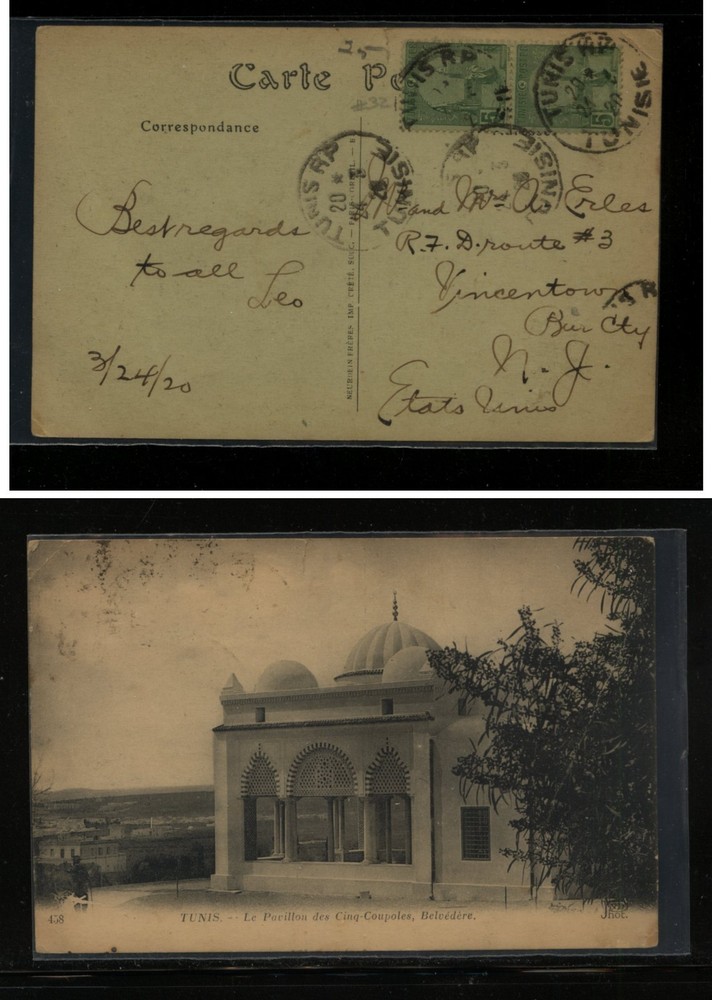 Carte
#321
Correspondance
TUNIS RP
TUNISIE
5
5
TUNIS RP
20 *
TUNISIE
Best regards
to all
Leo
3/24/20
NEURDEIN FRÈRES IMP. CRÉTÉ, SUCC.
and Mrs A. Erles
R.F.D. route #3
Vincentown
Bur Cty
N. J.
Etats Unis
458
TUNIS. -- Le Pavillon des Cinq-Coupoles, Belvédère.
phot.